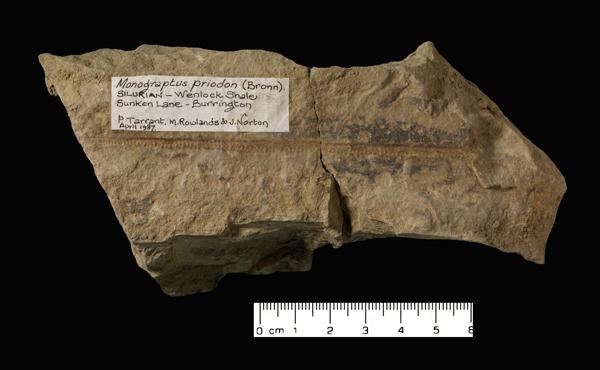 Monograptus priodon (Bronn).
SILURIAN - Wenlock Shale
Sunken Lane - Burrington
P. Tarrant, M. Rowlands & J. Norton
April 1987
0 cm 1 2 3 4 5 6 7 8